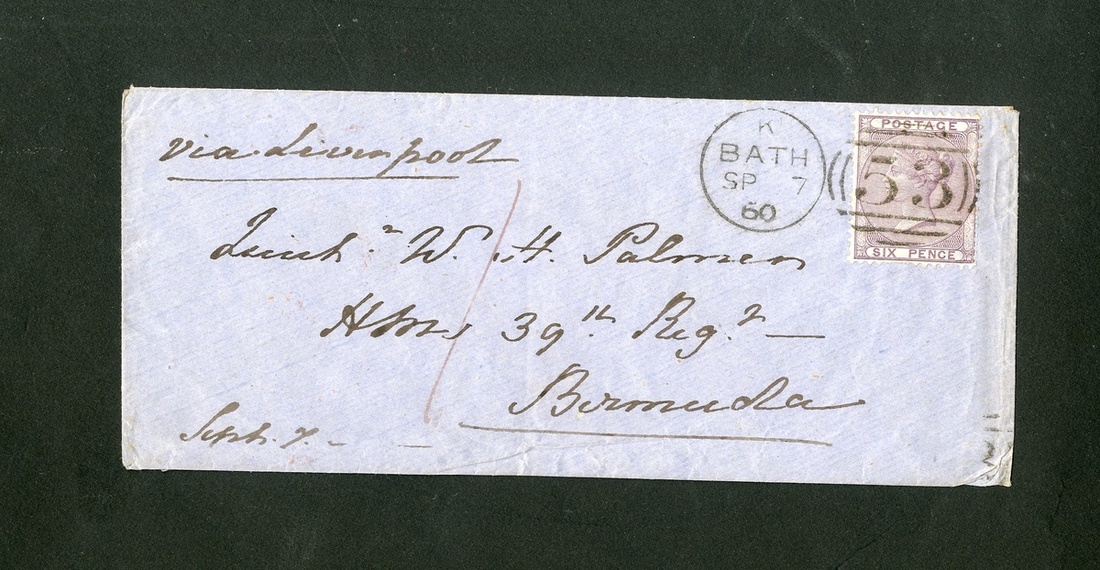 via Liverpool
K
BATH
SP 7
60
53
POSTAGE
SIX PENCE
Lieut. W. H. Palmer
HMs 39th Regt —
Bermuda
Septr. 7. – —